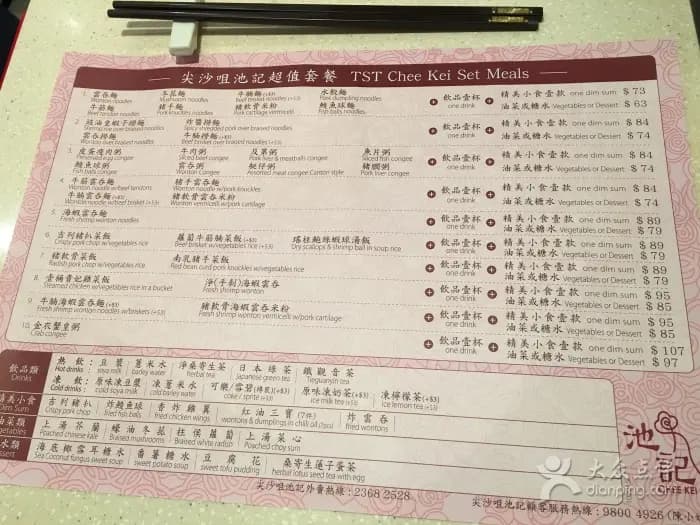 尖沙咀池記超值套餐 TST Chee Kei Set Meals
1. 雲吞麵 冬菰麵 牛腩麵(+$3) 水餃麵
Wonton noodles Mushroom noodles Beef brisket noodles (+$3) Pork dumpling noodles
牛筋麵 豬手麵 豬軟骨米粉 鯪魚球麵
Beef tendon noodles Pork knuckles noodles Pork cartilage vermicelli Fish balls noodles
+ 飲品壹杯 one drink + 精美小食壹款 one dim sum $ 73
油菜或糖水 Vegetables or Dessert $ 63
2. 蝦子撈麵 炸醬撈麵
Spicy shredded pork over braised noodles
雲吞撈麵 牛腩撈麵(+$3)
Wonton over braised noodles Beef brisket over braised noodles (+$3)
+ 飲品壹杯 one drink + 精美小食壹款 one dim sum $ 84
油菜或糖水 Vegetables or Dessert $ 74
3. 皮蛋瘦肉粥 牛肉粥 及第粥 魚片粥
Preserved egg congee Sliced beef congee Pork liver & meatballs congee Sliced fish congee
鯪魚球粥 雲吞粥 艇仔粥 豬膶粥
Fish balls congee Wonton Congee Assorted meat congee Canton style Pork liver congee
+ 飲品壹杯 one drink + 精美小食壹款 one dim sum $ 84
油菜或糖水 Vegetables or Dessert $ 74
4. 牛筋雲吞麵 豬手雲吞麵
Wonton noodle w/beef tendons Wonton noodle w/pork knuckles
牛腩雲吞麵(+$3) 豬軟骨雲吞米粉
Wonton noodle w/beef brisket (+$3) Wonton vermicelli w/pork cartilage
+ 飲品壹杯 one drink + 精美小食壹款 one dim sum $ 84
油菜或糖水 Vegetables or Dessert $ 74
5. 海蝦雲吞麵
Fresh shrimp wonton noodles
+ 飲品壹杯 one drink + 精美小食壹款 one dim sum $ 89
油菜或糖水 Vegetables or Dessert $ 79
6. 吉列豬扒菜飯 蘿蔔牛筋腩菜飯(+$3) 瑤柱鮑絲蝦球湯飯
Crispy pork chop w/vegetables rice Beef brisket w/vegetables rice (+$3) Dry scallops & shrimp ball in soup rice
+ 飲品壹杯 one drink + 精美小食壹款 one dim sum $ 89
油菜或糖水 Vegetables or Dessert $ 79
7. 豬軟骨菜飯 南乳豬手菜飯
Radish pork chop w/vegetables rice Red bean curd pork knuckles w/vegetables rice
+ 飲品壹杯 one drink + 精美小食壹款 one dim sum $ 89
油菜或糖水 Vegetables or Dessert $ 79
8. 壹桶香記雞菜飯 淨(手剝)海蝦雲吞
Steamed chicken w/vegetables rice in a bucket Fresh shrimp wonton
+ 飲品壹杯 one drink + 精美小食壹款 one dim sum $ 95
油菜或糖水 Vegetables or Dessert $ 85
9. 牛腩海蝦雲吞麵(+$3) 豬軟骨海蝦雲吞米粉
Fresh shrimp wonton noodles w/briskets (+$3) Fresh shrimp wonton vermicelli w/pork cartilage
+ 飲品壹杯 one drink + 精美小食壹款 one dim sum $ 95
油菜或糖水 Vegetables or Dessert $ 85
10. 金衣蟹皇粥
Crab congee
+ 飲品壹杯 one drink + 精美小食壹款 one dim sum $ 107
油菜或糖水 Vegetables or Dessert $ 97
飲品類 Drinks
熱飲: 豆漿 薏米水 淨桑寄生茶 日本綠茶 鐵觀音茶
Hot drinks: soya milk barley water herbal tea Japanese green tea Tieguanyin tea
凍飲: 原味凍豆漿 凍薏米水 可樂/雪碧(樽裝)(+$3) 原味凍奶茶(+$3) 凍檸檬茶(+$3)
Cold drinks: cold soya milk cold barley water coke / sprite (+$3) ice milk tea (+$3) ice lemon tea (+$3)
精美小食 Dim Sum
吉列豬扒 炸鯪魚球 香炸雞翼 紅油三寶(7件) 炸雲吞
Crispy pork chop fried fish balls fried chicken wings wontons & dumplings in chilli oil (7pcs) fried wontons
油菜類 Vegetables
上湯芥蘭 蠔油冬菰 柱侯蘿蔔 上湯菜心
Poached chinese kale Braised mushrooms Braised white radish Poached choy sum
糖水類 Dessert
海底椰雪耳糖水 番薯糖水 豆腐花 桑寄生蓮子蛋茶
Sea Coconut fungus sweet soup sweet potato soup sweet tofu pudding herbal lotus seed tea with egg
尖沙咀池記外賣熱線: 2368 2528
尖沙咀池記顧客服務熱線: 9800 4926 (陳小
池記
CHEE KEI
大众点评
dianping.com